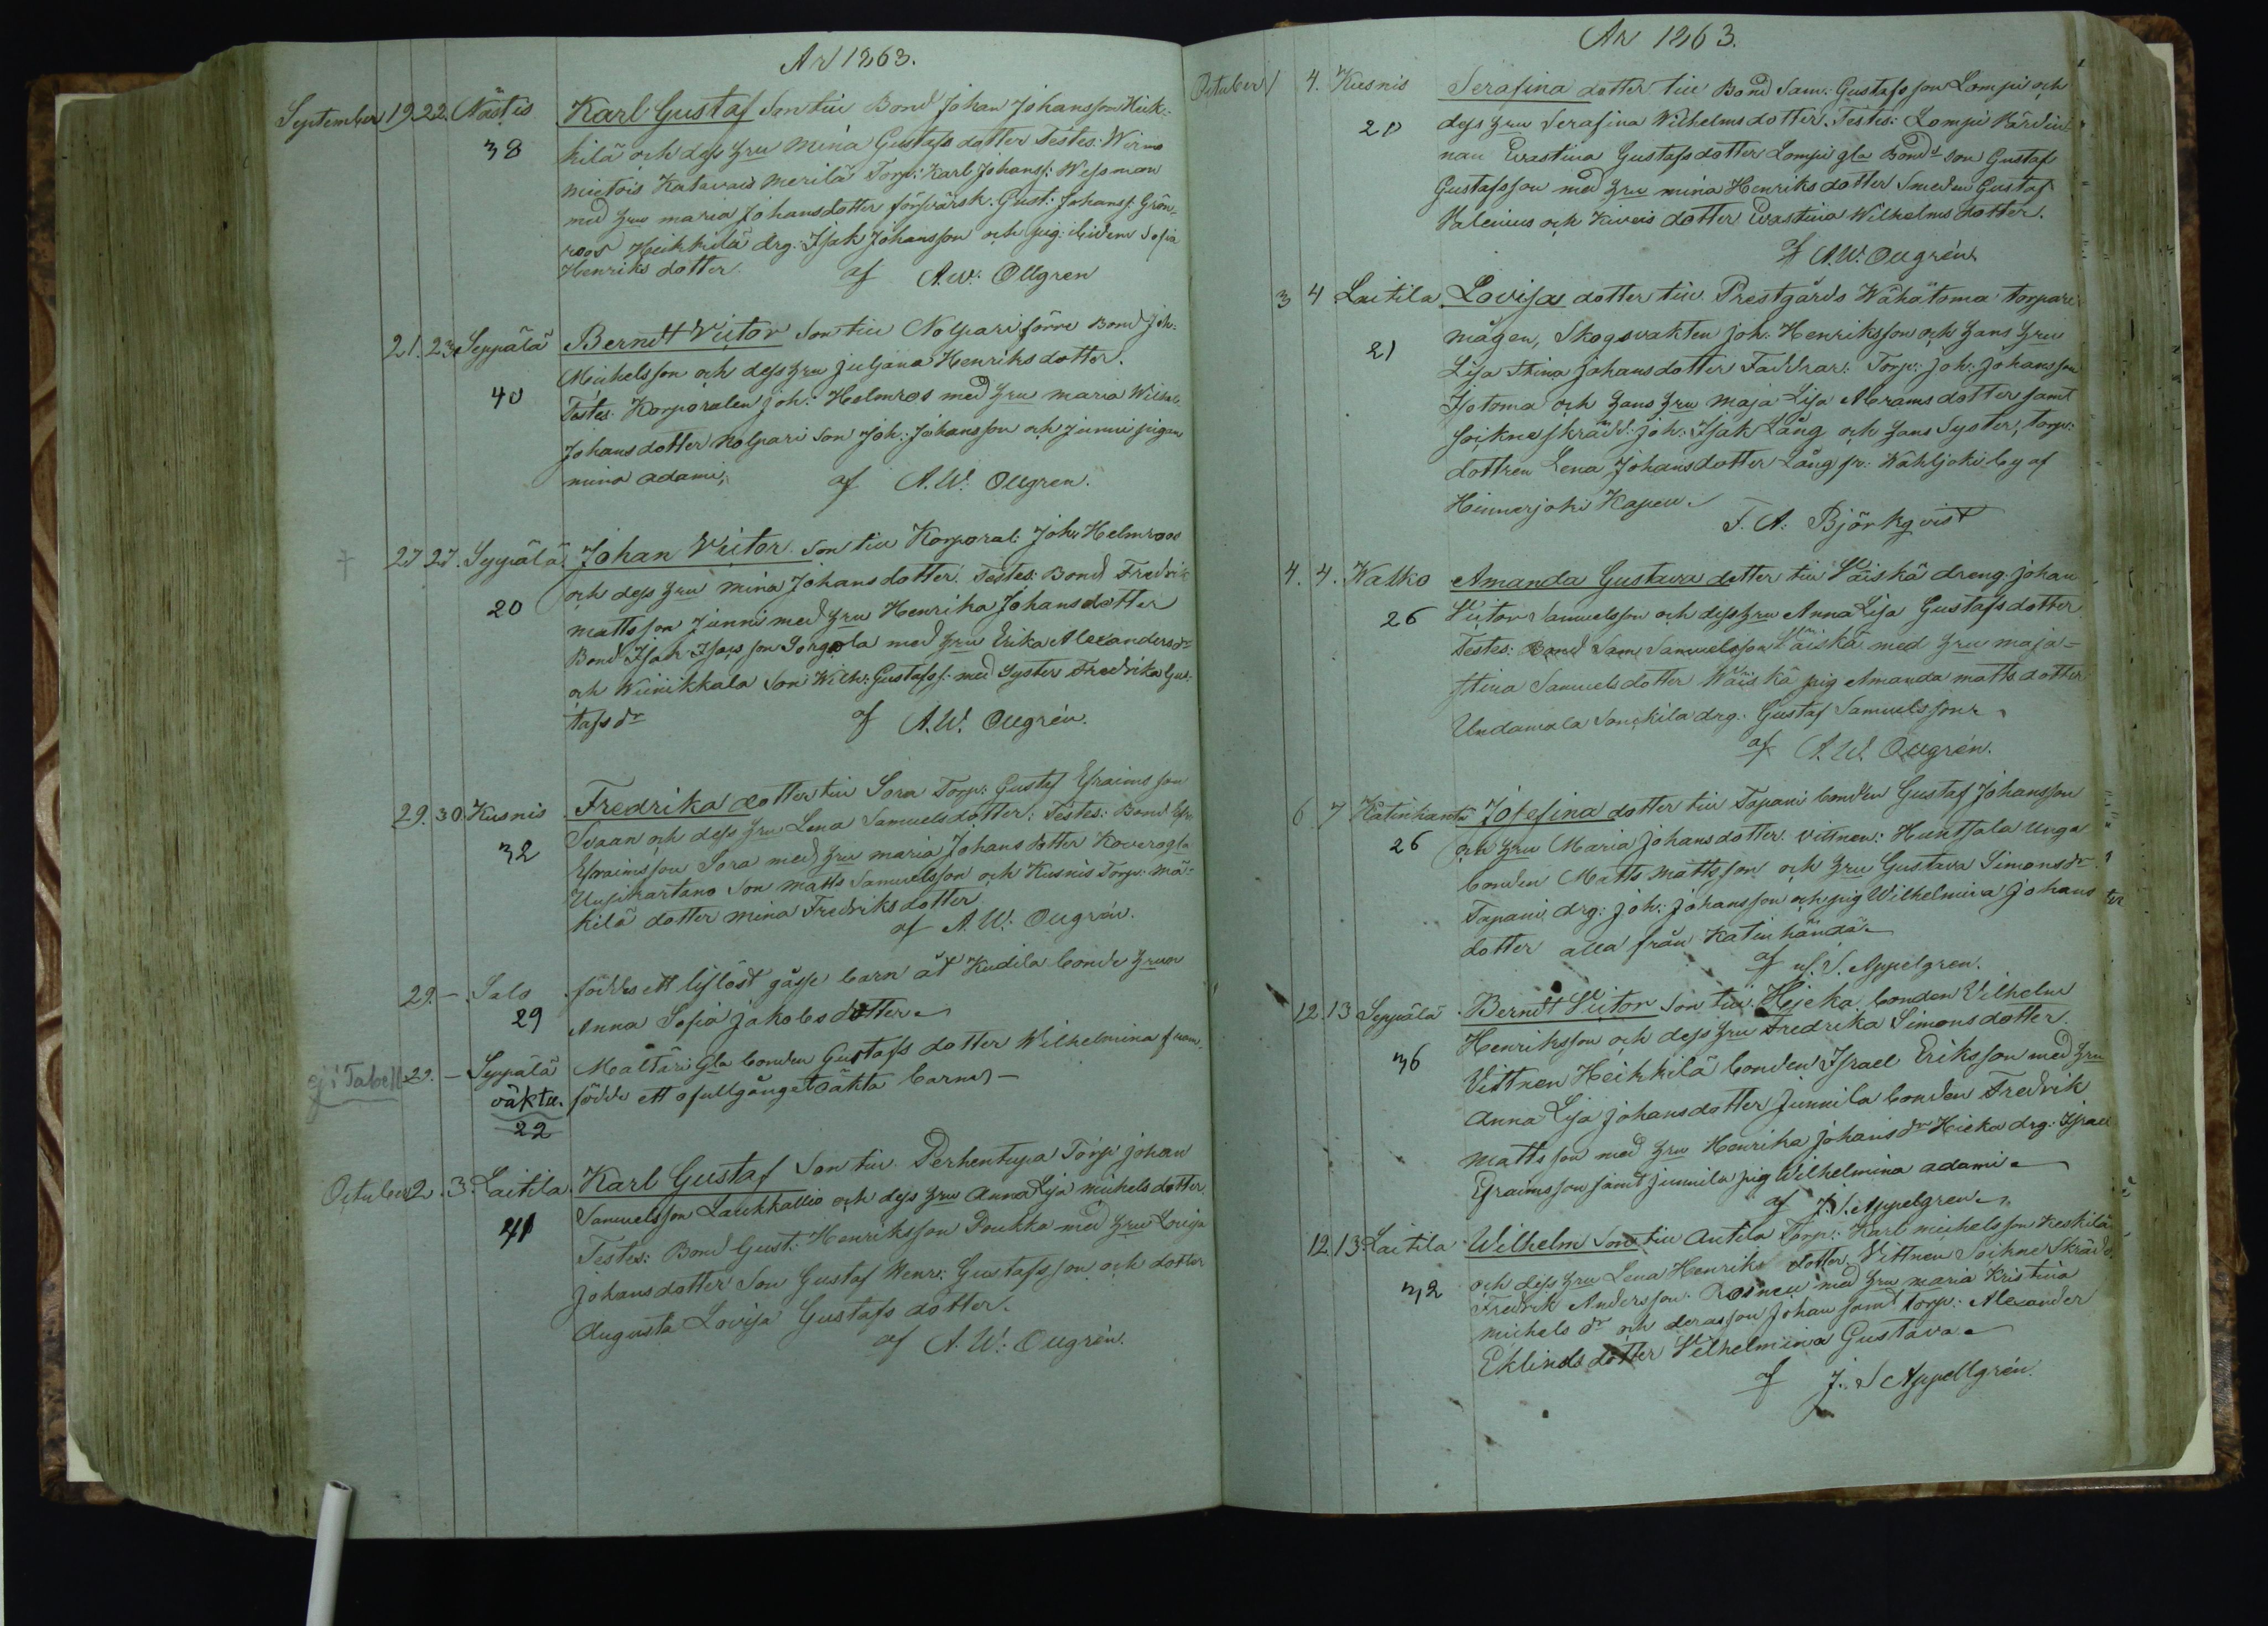 År 1863.
September 19. 22. Nästis Karl Gustaf Son till Bond Johan Johansson Heik-
38 kilä och dess hru Mina Gustafsdotter Testes: Wirmo
Mietois Katavais Merilä Torp: Karl Johanss: Wessman
med hru Maria Johansdotter försvarsk. Gust: Johanss: Grön-
roos Heikkilä drg. Isak Johansson och pig. Sofia
Henriks dotter. af A.W. Ollgren
21. 23. Seppälä Berndt Victor Son till Nolpari förre Bond Joh:
Michelsson och dess hru Juliana Henriksdotter.
40 Testes: Korporalen Joh: Helmros med hru Maria Wilhel:
Johansdotter Nolpari Son Joh: Johansson och Junni pigan
mina adami, af A.W. Ollgren.
27 27. Seppälä Johan Victor Son till Korporal: Joh: Helmroos
20 och dess hru Mina Johansdotter. Testes: Bond Fredrik
Mattsson Junni med hru Henrika Johansdotter
Bond Isak Isacsson Sorgola med hru Erika Alexandersdr
och Wiinikkala Son Wilh: Gustafss: med Syster Fredrika Gus-
tafsdr af A.W. Ollgrén.
29. 30. Kusnis Fredrika dotter till Sora Torp: Gustaf Efraimsson
Svaan och dess hru Lena Samuelsdotter: Testes: Bond Efr:
32 Efraimsson Sora med hru Maria Johansdotter Kovero gla
Uusikartano Son Matts Samuelsson och Kusnis Torp: Mä-
kilä dotter Mina Fredriksdotter
af A.W. Ollgrén.
29. – Salo föddes ett liflöst gosse barn åt Kudila bonde hrua
29 Anna Sofia Jakobsdotter
ej i Tabell 29. – Seppälä Maltäri Gla bonden Gustafs dotter Wilhelmina fram-
oäkta. födde ett ofullgånget oäkta barn –
22
October 2. 3. Laitila. Karl Gustaf Son till Perhentupa Torp: Johan
Samuelsson Laukkallio och dess hru Anna Lisa Michelsdotter
41 Testes: Bond Gust: Henriksson Poukka med hru Lovisa
Johansdotter Son Gustaf Henr: Gustafsson och dotter
Augusta Lovisa Gustafs dotter.
af A.W. Ollgrén.
År 1863.
October 1 4. Kusnis Serafina dotter till Bond Sam: Gustafsson Lompi och
20 dess hru Serafina Wilhelmsdotter. Testes: Lompi Värdin-
nan Evastina Gustafsdotter Lompi gla Bonds Son Gustaf
Gustafsson med hru Mina Henriksdotter Smeden Gustaf
Valenius och dotter Evastina Wilhelms dotter.
af A.W. Ollgrén
3 4 Laitila Lovisa dotter till Prestgårds Wähätoma torpare
21 mågen, Skogsvakten Joh: Henriksson och hans hru
Lisa Stina Johansdotter Faddrar: Torp: Joh: Johansson
Isotoma och hans hru Maja Lisa Abramsdotter samt
Sockneskrädd: Joh: Isak Lång och hans Syster, torp:
dottren Lena Johansdotter Lång fr: Wahljoki by af
Hinnerjoki Kapell.
F. A. Björkqvist
4. 4. Kalko Amanda Gustava dotter till Wäiskä dreng: Johan
26 Victor Samuelsson och dess hru Anna Lisa Gustafsdotter
Testes: Bond Sam: Samuelsson Wäiskä med hru Maja-
stina Samuelsdotter Wäiskä pig Amanda Mattsdotter
Undamala Sonckila drg: Gustaf Samuelsson
af A.W. Ollgrén.
6. 7 Katinhäntä Josefina dotter till Tapani bonden Gustaf Johansson
26 och hru Maria Johansdotter. Vittnen: Huntsala Unga
bonden Matts Mattsson och hru Gustava Simonsdr.
Tapani drg: Joh: Johansson och pig Wilhelmina Johans
dotter alla från Katinhändä
af J. S. Appelgren.
12. 13 Seppälä Berndt Victor Son till Hejeka bonden Vilhelm
Henriksson och dess hru Fredrika Simonsdotter.
36 Vittnen Heikkilä bonden Israel Eriksson med hru
Anna Lisa Johansdotter Junnila bonden Fredrik
Mattsson med hru Henrika Johansdr Hieka drg. Israel
Efraimsson samt Junnila pig Wilhelmina adami
af J. S. Appelgren
12. 13. Laitila Wilhelm Son till Antila Torp: Karl Michelsson Keskilä
och dess hru Lena Henriks dotter Vittnen Sockne Skrädd.
32 Fredrik Andersson Rosnell med hru Maria Kristina
Michelsdr och deras son Johan samt torp: Alexander
Eklinds dotter Vilhelmina Gustava
af J. S Appellgrén.